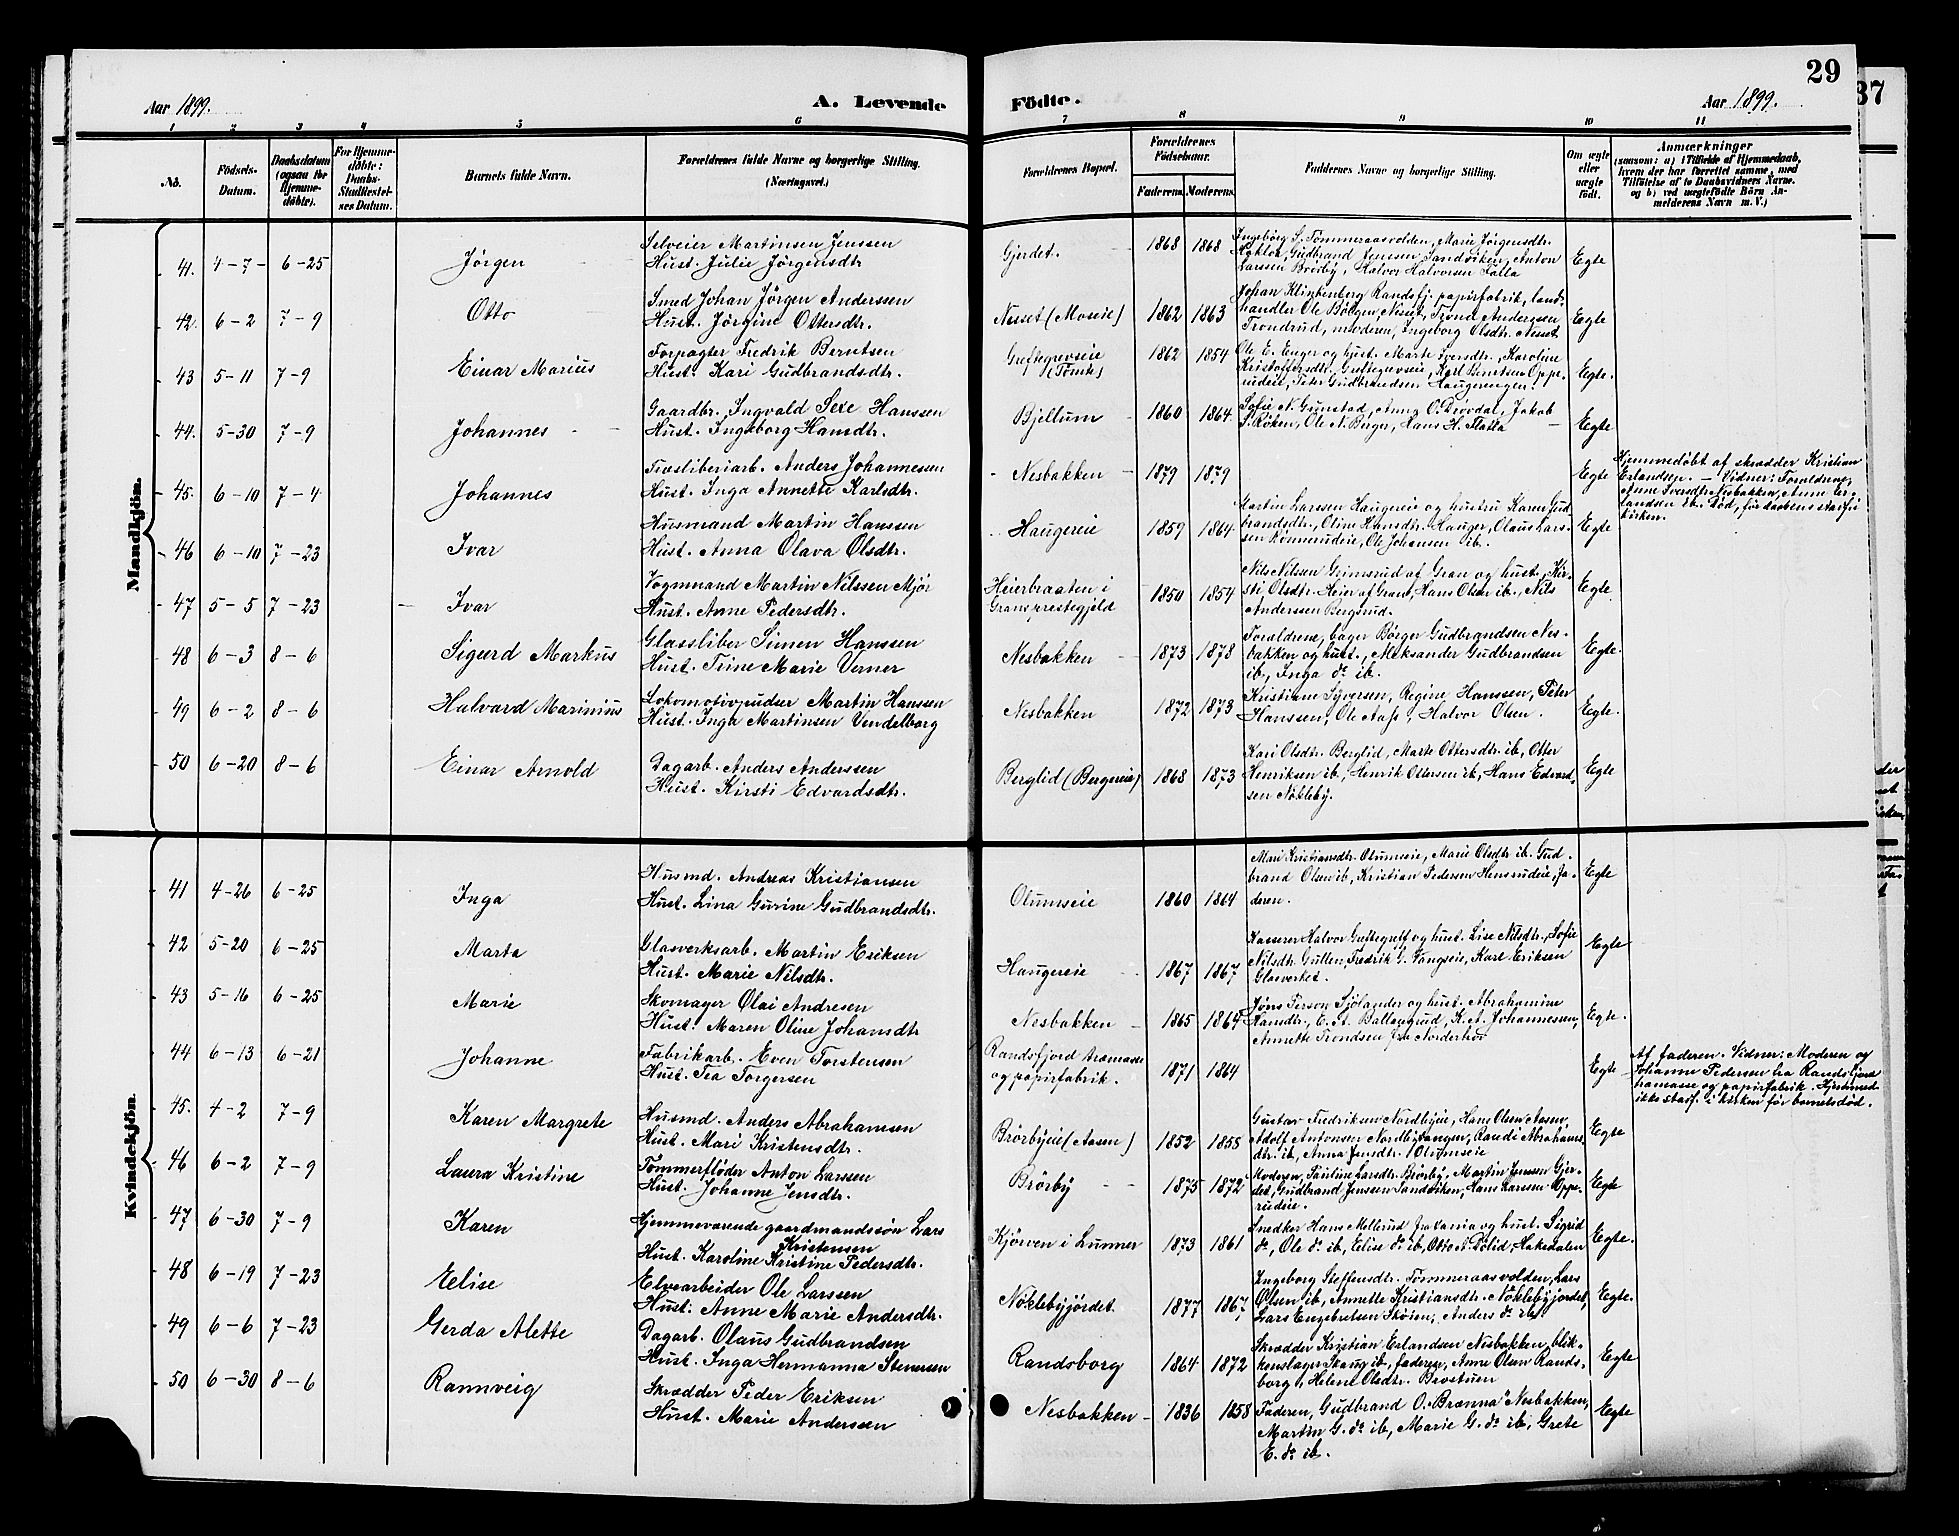 29
37
Aar 1899.
A. Levende
Födte.
Aar 1899.
1 2 3 4 5 6 7 8 9 10 11
No.
Födsels-
Datum.
Daabsdatum
(ogsaa for
Hjemme-
döbte).
For Hjemme-
döbte:
Daabs-
Stadfæstel-
ses Datum.
Barnets fulde Navn.
Forældrenes fulde Navne og borgerlige Stilling.
(Næringsvei.)
Forældrenes Bopæl.
Forældrenes
Födselsaar.
Faderens. Moderens.
Faddernes Navne og borgerlige Stilling.
Om ægte
eller
uægte
födt.
Anmærkninger
(saasom: a) i Tilfælde af Hjemmedaab,
hvem der har forrettet samme, med
Tilföielse af to Daabsvidners Navne,
og b) ved uægtefödte Börn An-
melderens Navn m. V.)
Mandkjön.
41. 4-7- 6-25 Jörgen
Selveier Martinsen Jenssen
Hust. Julie Jörgensdtr
Gjerdet. 1868 1868
Ingebörg S. Tömmeraasvolden, Marie Jörgensdtr.
Gudbrand Jenssen Sandviken, Anton
Larssen Brörby, Halvor Halvorsen Falla
Egte
42. 6-2 7-9 Otto
Smed Johan Jörgen Anderssen
Hust. Jörgine Ottersdtr.
Nesset (Moseie) 1862 1863
Johan Klinkenberg Randsfj. papirfabrik, land-
handler Ole Bölgen Nesset, Trond Anderssen
Trondrud, moderen, Ingeborg Olsdtr. Nesset
Egte
43 5-11 7-9 Einar Marius
Forpagter Fredrik Berntsen
Hust. Kari Gudbrandsdtr.
Greftegrevseie
1862 1854
Ole E. Enger og hust. Marte Iversdtr., Karoline
Kristoffersdtr. Greftegrevseie, Karl Berntsen Oppe-
rudeie, Peter Gudbrandsen Haugerengen.
Egte.
44. 5-30 7-9 Johannes
Gaardbr. Ingvald Sexe Hanssen
Hust. Ingeborg Hansdtr.
Bjellum 1860 1864
Sofie N. Gunstad, Anna O. Dövdal, Jakob
S. Röken, Ole N. Berger, Hans H. Flatla
Egte
45. 6-10 7-4 Johannes
Træsliberiarb. Anders Johannesen
Hust. Inga Annette Karlsdtr.
Nesbakken 1879 1879
Egte
Hjemmedöbt af skrædder Kristian
Erlandsen. – Vidner: Forældrene,
Anne Iversdtr. Nesbakken, Anne Er-
landsen ib. Död, för daabens stadf. i
kirken.
46 6-10 7-23 Ivar
Husmand Martin Hanssen
Hust. Anna Olava Olsdtr.
Haugereie 1859 1864
Martin Larssen Haugereie og hustru Karen Gud
brandsdtr., Oline Hansdtr. Hauger, Olaus Lars-
sen Rönnerudeie, Ole Johansen ib.
Egte
47 5-5 7-23 Ivar
Vognmand Martin Nilssen Mjör
Hust. Anne Pedersdtr.
Heierbraaten i
Grans prestegjeld
1850 1854
Nils Nilssen Grimsrud af Gran og hust., Kir-
sti Olsdtr. Heier af Gran, Hans Olsen ib., Nils
Anderssen Bergsrud.
Egte.
48 6-3 8-6 Sigurd Markus
Glassliber Simen Hanssen
Hust. Trine Marie Verner
Nesbakken 1873 1878
Forældrene, bager Börger Gudbrandsen Nes-
bakken og hust., Aleksander Gudbrandsen
ib., Inga do ib.
Egte.
49 6-2 8-6 Halvard Marinius
Lokomotivpudser Martin Hanssen
Hust. Inga Martinsen Vendelborg
Nesbakken 1872 1873
Kristiane Syversen, Regine Hanssen, Peter
Hanssen, Ole Aass, Halvor Olsen.
Egte.
50 6-20 8-6 Einar Arnold
Dagarb. Anders Anderssen
Hust. Kirsti Edvardsdtr.
Berglid (Bergereie) 1868 1873
Kari Olsdtr. Berglid, Marte Ottersdtr. ib., Otter
Henriksen ib., Henrik Ottersen ib., Hans Edvard-
sen Nökleby.
Egte
Kvindekjön.
41 4-26 6-25 Inga
Husmd. Andreas Kristiansen
Hust. Lina Gurine Gudbrandsdtr.
Olumseie 1860 1864
Mari Kristiansdtr. Olumseie, Marie Olsdtr. ib. Gud-
brand Olsen ib, Kristian Pedersen Hensrudeie, fa-
deren.
Egte
42 5-20 6-25 Marta
Glasverksarb. Martin Eriksen
Hust. Marie Nilsdtr.
Haugereie 1867 1867
Kasserer Halvor Greftegreff og hust. Lise Nilsdtr., Sofie
Nilsdtr. Gullen, Fredrik L. Vangseie, Karl Eriksen
Glasverket.
Egte
43 5-16 6-25 Marie
Skomager Olai Andresen
Hust. Maren Oline Johansdtr
Nesbakken 1865 1864
Jöns Person Sjölander og hust. Abrahamine
Hansdtr., E. A. Ballangrud, K. A. Johannessen,
Annette Trondsen fra Norderhov
Egte.
44 6-13 6-21 Johanne
Fabrikarb. Even Torstensen
Hust. Tea Torgersen
Randsfjord træmasse
og papirfabrik.
1871 1864
Egte
Af faderen. Vidner: Moderen og
Johanne Pedersen fra Randsfjord
træmasse og papirfabrik. Hjemmed.
ikke stadf. i kirken för barnets död.
45. 4-2 7-9 Karen Margrete
Husmd. Anders Abrahamsen
Hust. Mari Kristensdtr.
Brörbyeie (Aasen) 1852 1858
Gustav Fredriksen Nordbyeie, Hans Olsen Aasen,
Adolf Antonsen Nordbyvangen, Randi Abrahams-
dtr. ib, Anna Jensdtr. Olumseie
Egte
46 6-2 7-9 Laura Kristine
Tömmerflöder Anton Larssen
Hust. Johanne Jensdtr.
Brörby 1875 1872
Moderen, Pauline Larsdtr. Brörby, Martin Jenssen Gjer-
det, Gudbrand Jenssen Sandviken, Hans Larssen Oppe-
rudeie.
Egte
47 6-30 7-9 Karen
Hjemmeværende gaardmandssön Lars
Kristensen
Hust. Karoline Kristine Pedersdtr.
Kjörven i Lunner 1873 1861
Snedker Hans Mellerud fra Vania og hust. Sigrid
do, Ole do ib, Eelise do ib, Otto A. Dölid, Hakedalen
Egte.
48 6-19 7-23 Eelise
Elvearbeider Ole Larssen
Hust. Anne Marie Andersdtr.
Nöklebygjördet. 1877 1867
Ingeborg Steffensdtr. Tömmeraasvolden, Lars
Olsen ib, Annette Kristiansdtr. Nöklebyjordet,
Lars Engebretsen Skösen, Anders do ib.
Egte.
49 6-6 7-23 Gerda Alette
Dagarb. Olaus Gudbrandsen
Hust. Inga Hermanna Stenersen
Randsborg 1864 1872
Skrædder Kristian Erlandsen Nesbakken, blik-
kenslager Skaug ib., faderen, Anne Olsen Rands-
borg, Helene Olsdtr. Brostuen
Egte
50 6-30 8-6 Rannveig
Skrædder Peder Eriksen
Hust. Marie Anderssen
Nesbakken 1836 1858
Faderen, Gudbrand O. Brænna Nesbakken,
Martin G. do ib, Marie G. do ib, Grete
E. do ib.
Egte